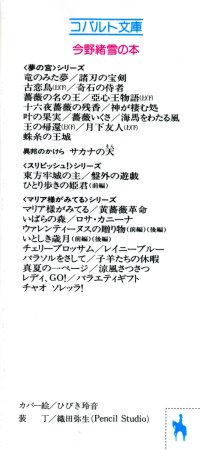 コバルト文庫
今野緒雪の本
〈夢の宮〉シリーズ
竜のみた夢／諸刃の宝剣
古恋鳥(上)(下)／奇石の侍者
薔薇の名の王／亜心王物語(上)(下)
十六夜薔薇の残香／神が棲む処
叶の果実／薔薇いくさ／海馬をわたる風
王の帰還(上)(下)／月下友人(上)(下)
蛛糸の王城
異邦のかけら サカナの天
〈スリピッシュ！〉シリーズ
東方牢城の主／盤外の遊戯
ひとり歩きの姫君(前編)
〈マリア様がみてる〉シリーズ
マリア様がみてる／黄薔薇革命
いばらの森／ロサ・カニーナ
ウァレンティーヌスの贈り物(前編)(後編)
いとしき歳月(前編)(後編)
チェリーブロッサム／レイニーブルー
パラソルをさして／子羊たちの休暇
真夏の一ページ／涼風さつさつ
レディ、GO！／バラエティギフト
チャオ ソレッラ！
カバー絵／ひびき玲音
装　丁／織田弥生(Pencil Studio)